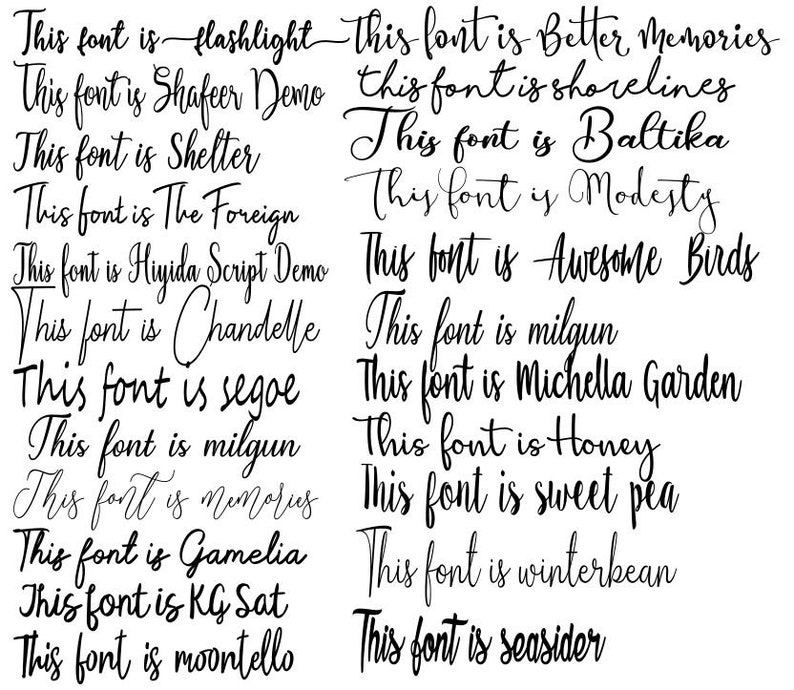 This font is flashlight
This font is Shafeer Demo
This font is Shelter
This font is The Foreign
This font is Hiyida Script Demo
This font is Chandelle
This font is segoe
This font is milgun
This font is memories
This font is Gamelia
This font is KG Sat
This font is moontello
This font is Better Memories
this font is shorelines
This font is Baltika
This font is Modesty
This font is Awesome Birds
This font is milgun
This font is Michella Garden
This font is Honey
This font is sweet pea
This font is winterbean
This font is seasider